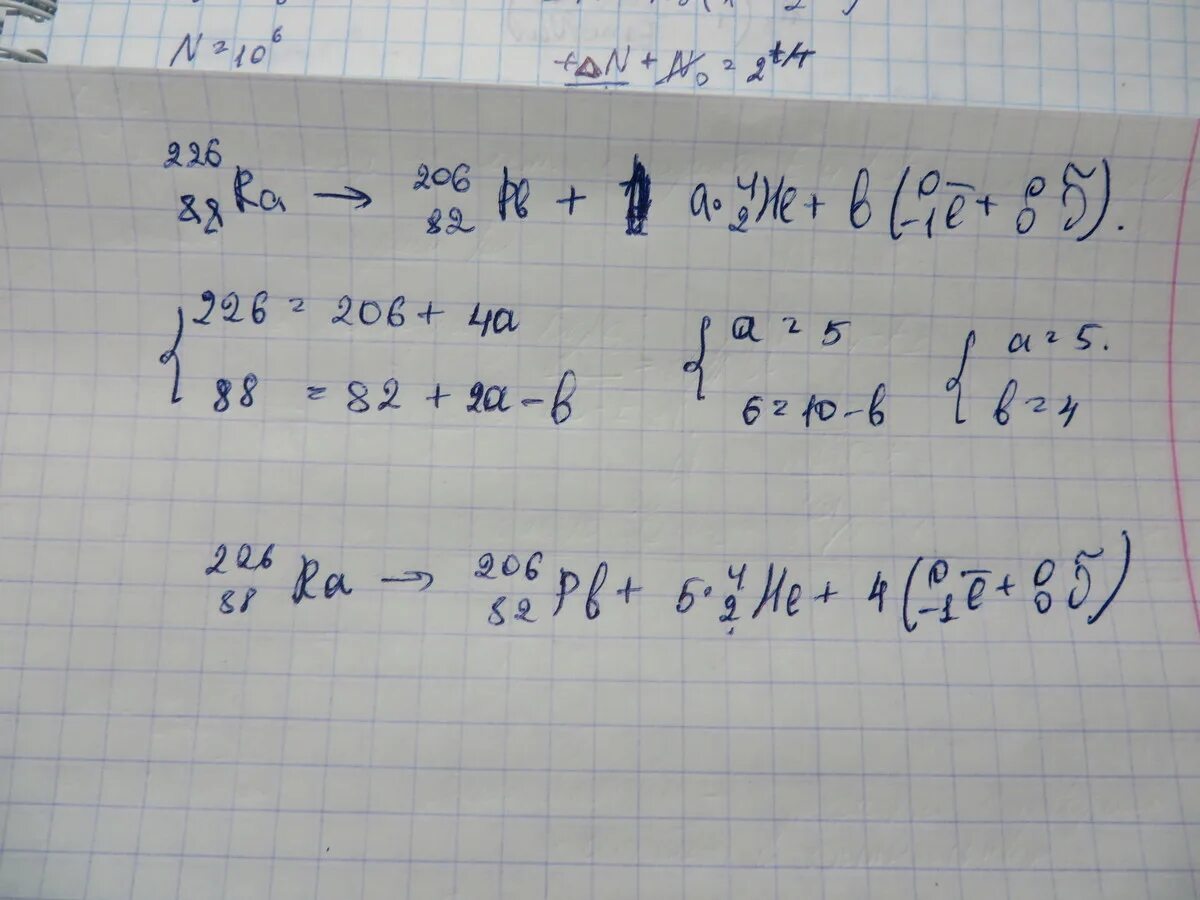 N = 10⁶
+ΔN + N₀ = 2
²²⁶₈₈Ra → ²⁰⁶₈₂Pb + a·⁴₂He + b(⁰₋₁e̅ + ⁰₀ν̃).
{226 = 206 + 4a {a = 5 {a = 5.
88 = 82 + 2a − b 6 = 10 − b b = 4
²²⁶₈₈Ra → ²⁰⁶₈₂Pb + 5·⁴₂He + 4(⁰₋₁e̅ + ⁰₀ν̃)